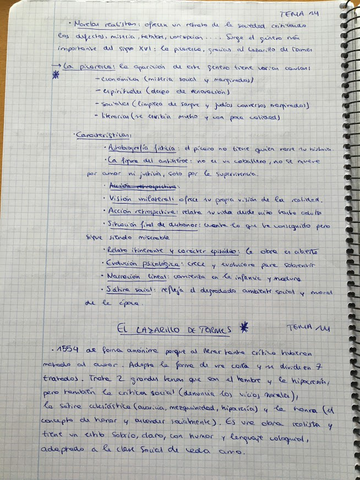 TEMA 14
· Novelas realistas: ofrecen un retrato de la sociedad criticando
los defectos, miseria, hambre, corrupción... Surge el género más
importante del siglo XVI: la picaresca, gracias al Lazarillo de Tormes
→ La picaresca: la aparición de este género tiene varias causas:
- económicas (miseria social y marginados)
- espirituales (deseo de renovación)
- sociales (limpieza de sangre y judíos conversos marginados)
- literarias (se escribía mucho y con gran calidad)
· Características:
· Autobiografía ficticia: el pícaro no tiene quien narre su historia
· La figura del antihéroe: no es un caballero, no se mueve
por amor ni justicia, solo por la supervivencia.
· Acción retrospectiva
· Visión unilateral: ofrece su propia visión de la realidad.
· Acción retrospectiva: relata su vida desde niño hasta adulto
· Situación final de deshonor: cuenta lo que ha conseguido pero
sigue siendo miserable
· Relato itinerante y carácter episódico: la obra es abierta
· Evolución psicológica: crece y evoluciona para sobrevivir
· Narración lineal: comienza en la infancia y madura
· Sátira social: refleja el degradado ambiente social y moral
de la época.
EL LAZARILLO DE TORMES
TEMA 14
· 1554 de forma anónima porque al tener tanta crítica hubieran
matado al autor. Adopta la forma de una carta y se divide en 7
tratados. Trata 2 grandes temas que son el hambre y la hipocresía,
pero también la crítica social (denuncia los vicios morales),
la sátira eclesiástica (avaricia, mezquindad, hipocresía) y la honra (el
concepto de honor y ascender socialmente). Es una obra realista y
tiene un estilo sobrio, claro, con humor y lenguaje coloquial,
adaptado a la clase social de cada amo.